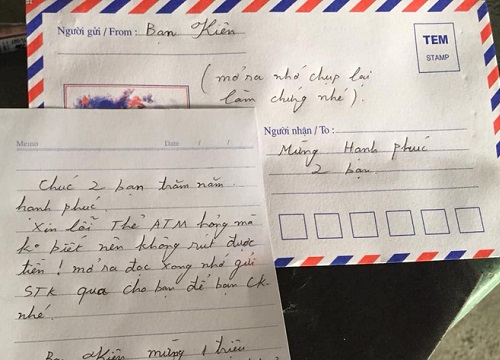 Người gửi / From : Bạn Kiên
TEM
STAMP
(mở ra nhớ chụp lại
làm chứng nhé).
Người nhận / To :
Mừng Hanh phúc
2 bạn
Memo Date / /
Chúc 2 bạn trăm năm
hanh phúc.
Xin lỗi Thẻ ATM hỏng mà
ko biết nên không rút được
tiền! mở ra đọc xong nhớ gửi
STK qua cho bạn để bạn CK
nhé.
Bạn Kiên mừng 1 triệu